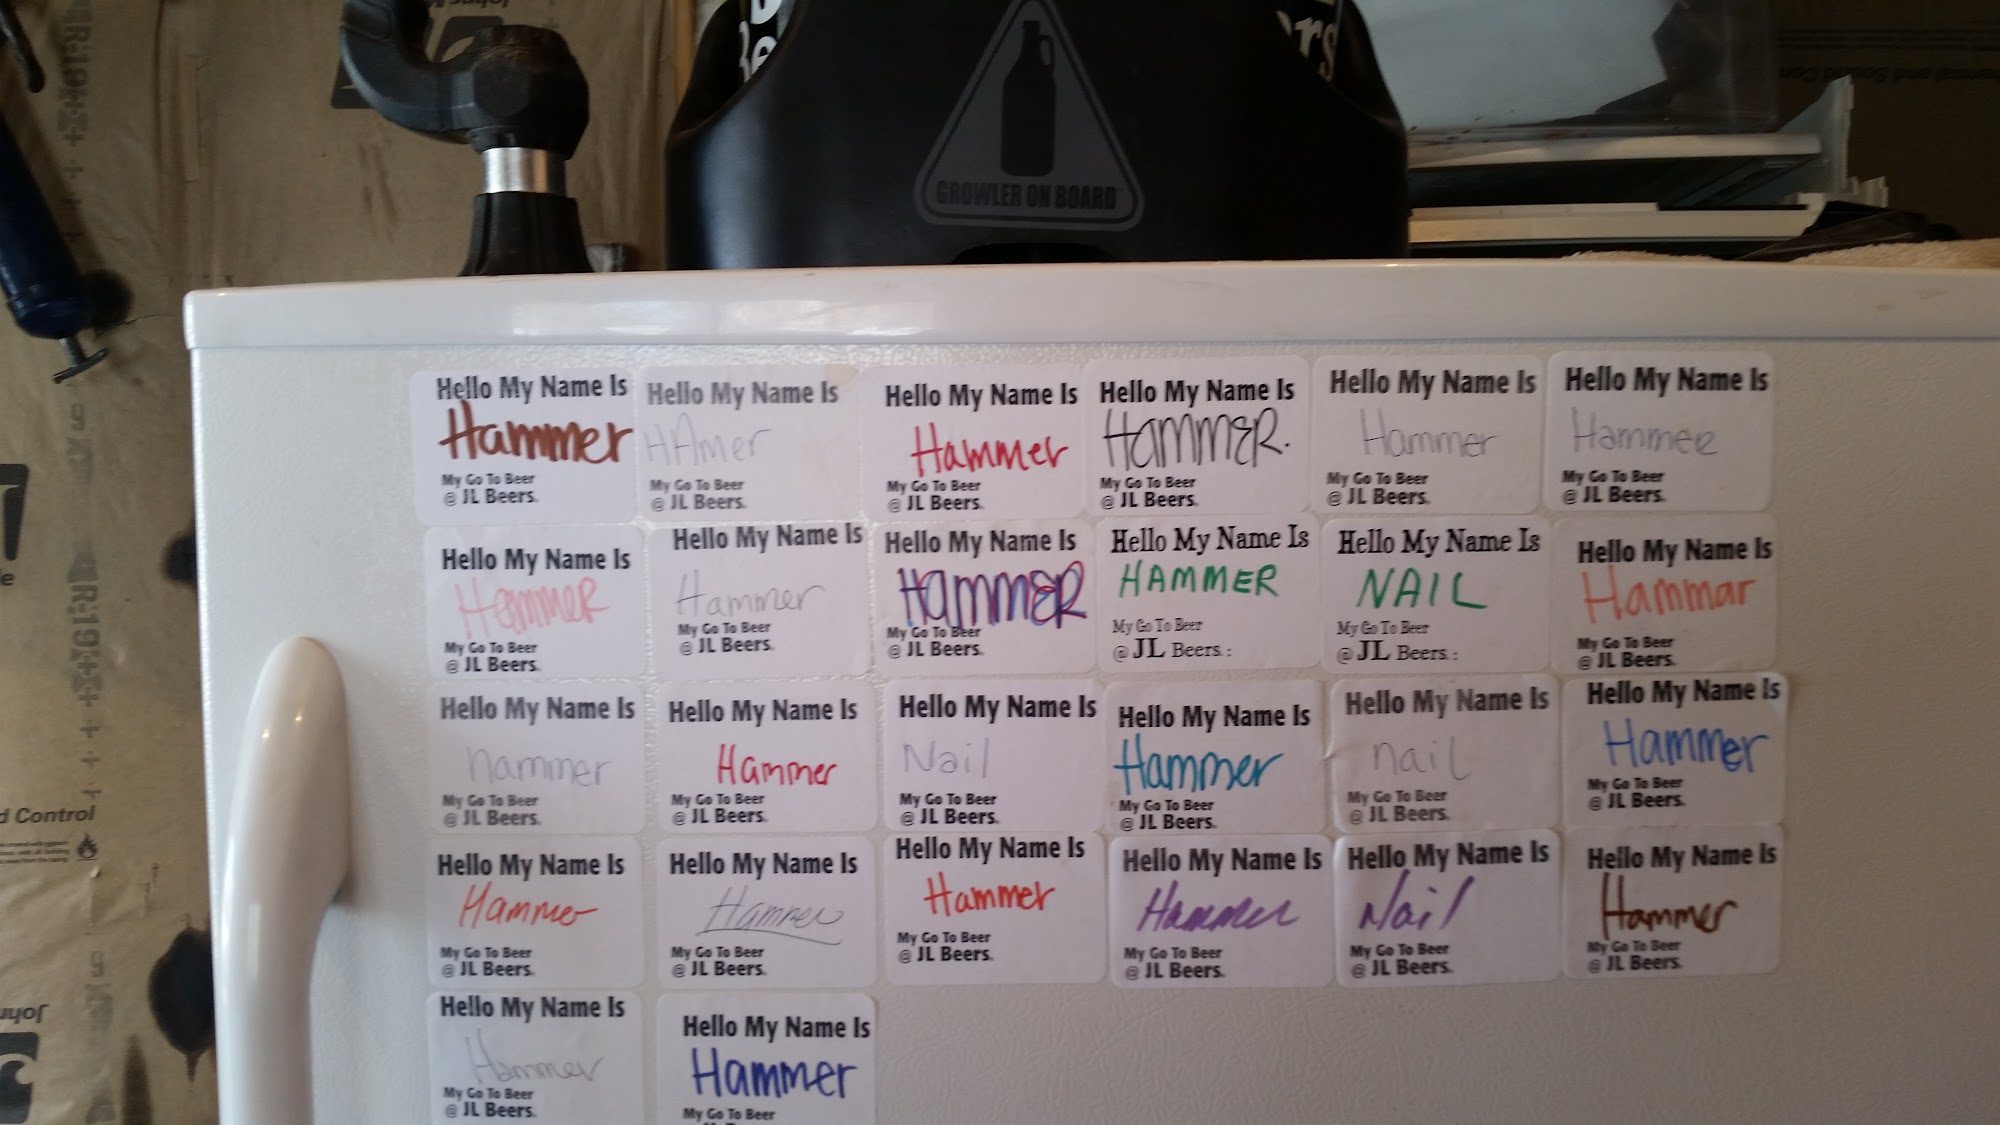 GROWLER ON BOARD
Hello My Name Is
Hammer
My Go To Beer
@ JL Beers.
Hello My Name Is
HAmer
My Go To Beer
@ JL Beers.
Hello My Name Is
Hammer
My Go To Beer
@ JL Beers.
Hello My Name Is
HAMMER.
My Go To Beer
@ JL Beers.
Hello My Name Is
Hammer
My Go To Beer
@ JL Beers.
Hello My Name Is
Hammer
My Go To Beer
@ JL Beers.
Hello My Name Is
HammeR
My Go To Beer
@ JL Beers.
Hello My Name Is
Hammer
My Go To Beer
@ JL Beers.
Hello My Name Is
HAMMER
My Go To Beer
@ JL Beers.
Hello My Name Is
HAMMER
My Go To Beer
@ JL Beers. :
Hello My Name Is
NAIL
My Go To Beer
@ JL Beers. :
Hello My Name Is
Hammar
My Go To Beer
@ JL Beers.
Hello My Name Is
hammer
My Go To Beer
@ JL Beers.
Hello My Name Is
Hammer
My Go To Beer
@ JL Beers.
Hello My Name Is
Nail
My Go To Beer
@ JL Beers.
Hello My Name Is
Hammer
My Go To Beer
@ JL Beers.
Hello My Name Is
nail
My Go To Beer
@ JL Beers.
Hello My Name Is
Hammer
My Go To Beer
@ JL Beers.
Hello My Name Is
Hammer
My Go To Beer
@ JL Beers.
Hello My Name Is
Hammer
My Go To Beer
@ JL Beers.
Hello My Name Is
Hammer
My Go To Beer
@ JL Beers.
Hello My Name Is
Hammer
My Go To Beer
@ JL Beers.
Hello My Name Is
Nail
My Go To Beer
@ JL Beers.
Hello My Name Is
Hammer
My Go To Beer
@ JL Beers.
Hello My Name Is
Hammer
My Go To Beer
@ JL Beers.
Hello My Name Is
Hammer
My Go To Beer
R-19
R-19
Control